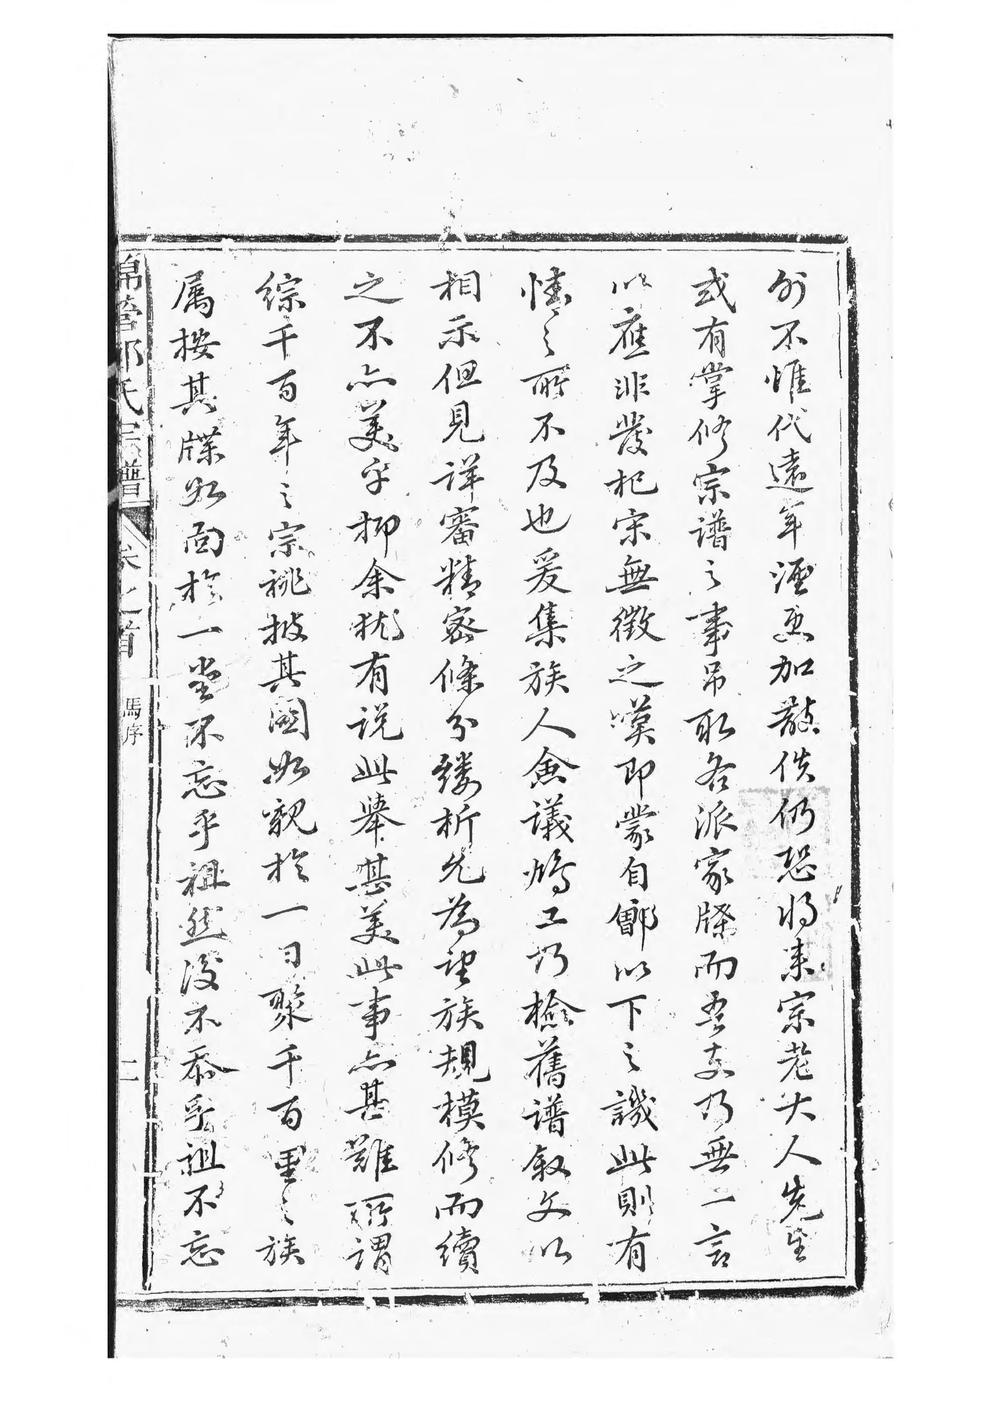 外不惟代遠年湮更加散佚仍恐將來宗老大人先生
或有掌修宗譜之事吊取各派家牒而吾支乃無一言
以應非發杞宋無徵之嘆即蒙自鄶以下之譏此則有
情之所不及也爰集族人僉議鳩工乃檢舊譜敘文以
相示但見詳審精密條分縷析允為望族規模修而續
之不亦美乎抑余猶有說此舉甚美此事亦甚難所謂
綜千百年之宗祧披其圖如親於一日聚千百里之族
屬按其牒如面於一堂不忘乎祖然後不忝乎祖不忘
氏宗譜
卷之首
馬序
二